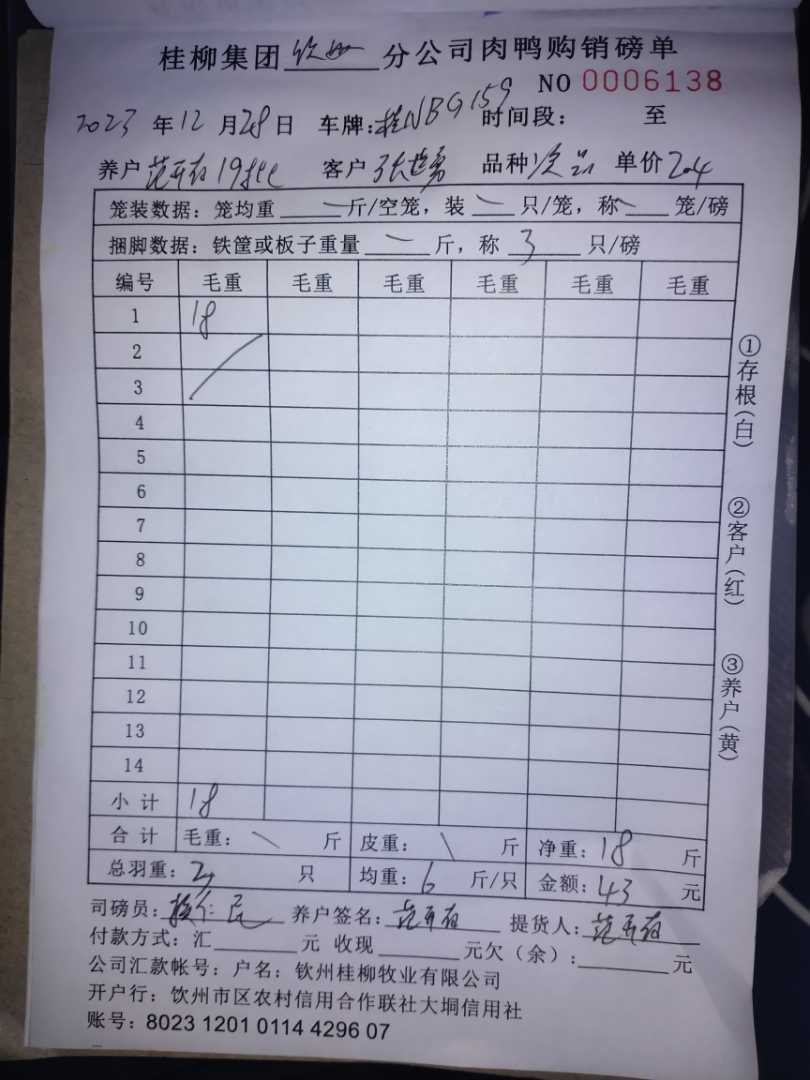 桂柳集团钦州分公司肉鸭购销磅单
NO 0006138
2023年12月28日 车牌:桂NBG159 时间段: 至
养户 19批 客户 张世勇 品种 次品 单价 2.4
笼装数据:笼均重 一 斤/空笼,装 一 只/笼,称 一 笼/磅
捆脚数据:铁筐或板子重量 一 斤,称 3 只/磅
编号 毛重 毛重 毛重 毛重 毛重 毛重
1 18
2
3
4
5
6
7
8
9
10
11
12
13
14
小计 18
合计 毛重: \ 斤 皮重: \ 斤 净重: 18 斤
总羽重: 只 均重: 6 斤/只 金额: 43 元
司磅员: 养户签名: 提货人:
付款方式:汇 元 收现 元欠(余): 元
公司汇款帐号:户名:钦州桂柳牧业有限公司
开户行:钦州市区农村信用合作联社大垌信用社
账号:8023 1201 0114 4296 07
①存根(白)
②客户(红)
③养户(黄)